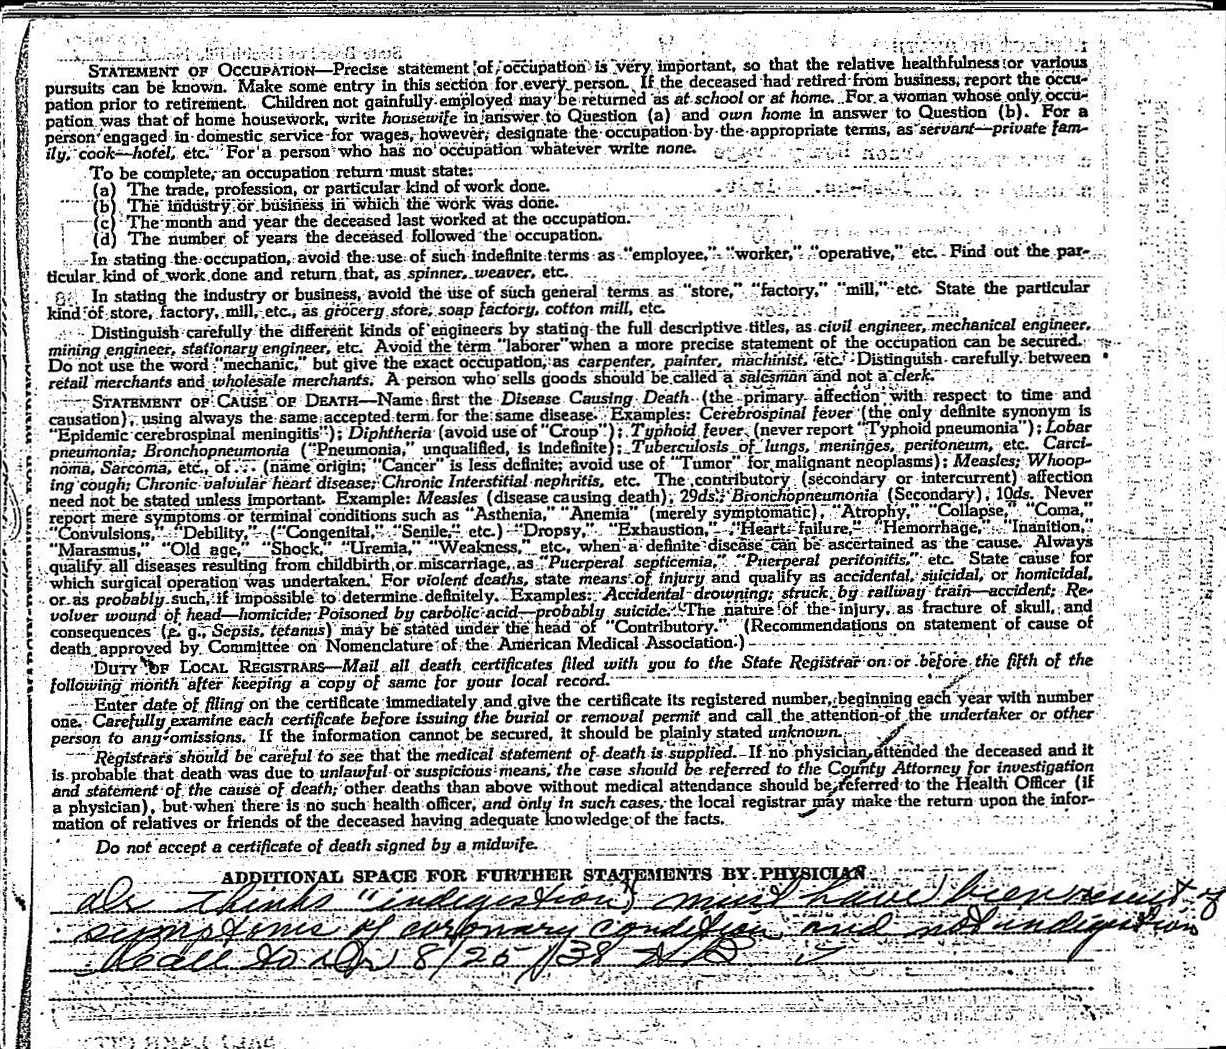 STATEMENT OF OCCUPATION—Precise statement of occupation is very important, so that the relative healthfulness or various
pursuits can be known. Make some entry in this section for every person. If the deceased had retired from business, report the occu-
pation prior to retirement. Children not gainfully employed may be returned as at school or at home. For a woman whose only occu-
pation was that of home housework, write housewife in answer to Question (a) and own home in answer to Question (b). For a
person engaged in domestic service for wages, however, designate the occupation by the appropriate terms, as servant—private fam-
ily, cook—hotel, etc. For a person who has no occupation whatever write none.
To be complete, an occupation return must state:
(a) The trade, profession, or particular kind of work done.
(b) The industry or business in which the work was done.
(c) The month and year the deceased last worked at the occupation.
(d) The number of years the deceased followed the occupation.
In stating the occupation, avoid the use of such indefinite terms as "employee," "worker," "operative," etc. Find out the par-
ticular kind of work done and return that, as spinner, weaver, etc.
In stating the industry or business, avoid the use of such general terms as "store," "factory," "mill," etc. State the particular
kind of store, factory, mill, etc., as grocery store, soap factory, cotton mill, etc.
Distinguish carefully the different kinds of engineers by stating the full descriptive titles, as civil engineer, mechanical engineer,
mining engineer, stationary engineer, etc. Avoid the term "laborer" when a more precise statement of the occupation can be secured.
Do not use the word "mechanic," but give the exact occupation, as carpenter, painter, machinist, etc. Distinguish carefully between
retail merchants and wholesale merchants. A person who sells goods should be called a salesman and not a clerk.
STATEMENT OF CAUSE OF DEATH—Name first the Disease Causing Death (the primary affection with respect to time and
causation), using always the same accepted term for the same disease. Examples: Cerebrospinal fever (the only definite synonym is
"Epidemic cerebrospinal meningitis"); Diphtheria (avoid use of "Croup"); Typhoid fever (never report "Typhoid pneumonia"); Lobar
pneumonia; Bronchopneumonia ("Pneumonia," unqualified, is indefinite); Tuberculosis of lungs, meninges, peritoneum, etc. Carci-
noma, Sarcoma, etc., of ... (name origin; "Cancer" is less definite; avoid use of "Tumor" for malignant neoplasms); Measles; Whoop-
ing cough; Chronic valvular heart disease; Chronic Interstitial nephritis, etc. The contributory (secondary or intercurrent) affection
need not be stated unless important. Example: Measles (disease causing death), 29ds.; Bronchopneumonia (Secondary), 10ds. Never
report mere symptoms or terminal conditions such as "Asthenia," "Anemia" (merely symptomatic), "Atrophy," "Collapse," "Coma,"
"Convulsions," "Debility," ("Congenital," "Senile," etc.) "Dropsy," "Exhaustion," "Heart failure," "Hemorrhage," "Inanition,"
"Marasmus," "Old age," "Shock," "Uremia," "Weakness," etc., when a definite disease can be ascertained as the cause. Always
qualify all diseases resulting from childbirth or miscarriage, as "Puerperal septicemia," "Puerperal peritonitis," etc. State cause for
which surgical operation was undertaken. For violent deaths, state means of injury and qualify as accidental, suicidal, or homicidal,
or as probably such, if impossible to determine definitely. Examples: Accidental drowning; struck by railway train—accident; Re-
volver wound of head—homicide; Poisoned by carbolic acid—probably suicide. The nature of the injury, as fracture of skull, and
consequences (e. g., Sepsis, tetanus) may be stated under the head of "Contributory." (Recommendations on statement of cause of
death approved by Committee on Nomenclature of the American Medical Association.)
DUTY OF LOCAL REGISTRARS—Mail all death certificates filed with you to the State Registrar on or before the fifth of the
following month after keeping a copy of same for your local record.
Enter date of filing on the certificate immediately and give the certificate its registered number, beginning each year with number
one. Carefully examine each certificate before issuing the burial or removal permit and call the attention of the undertaker or other
person to any omissions. If the information cannot be secured, it should be plainly stated unknown.
Registrars should be careful to see that the medical statement of death is supplied. If no physician attended the deceased and it
is probable that death was due to unlawful or suspicious means, the case should be referred to the County Attorney for investigation
and statement of the cause of death; other deaths than above without medical attendance should be referred to the Health Officer (if
a physician), but when there is no such health officer, and only in such cases, the local registrar may make the return upon the infor-
mation of relatives or friends of the deceased having adequate knowledge of the facts.
Do not accept a certificate of death signed by a midwife.
ADDITIONAL SPACE FOR FURTHER STATEMENTS BY PHYSICIAN
Dr thinks "indigestion" must have been result of
symptoms of coronary condition and not indigestion
call to Dr 8/25/38